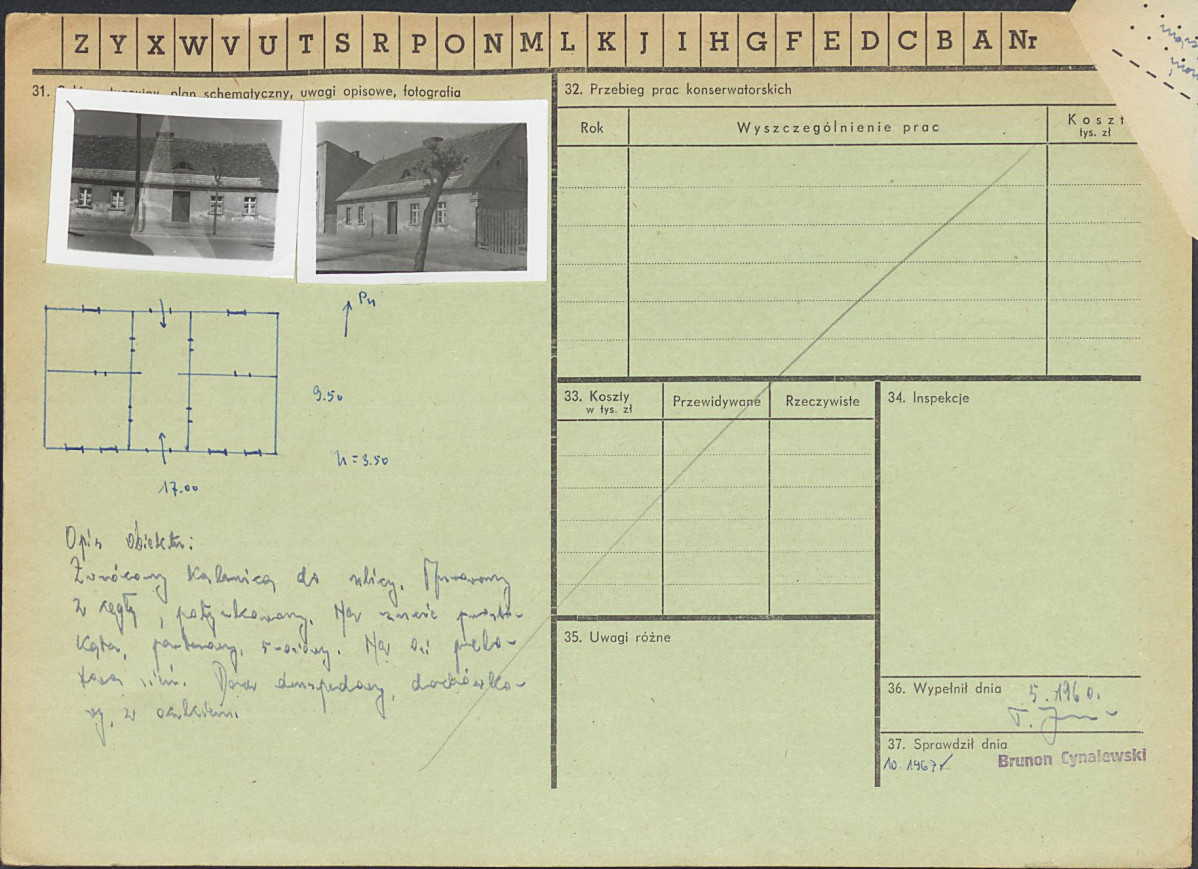 Z Y X W V U T S R P O N M L K J I H G F E D C B A Nr
31. plan schematyczny, uwagi opisowe, fotografia
Pn
9.50
h = 3.50
17.00
Opis obiektu:
Zwrócony kalenicą do ulicy. Murowany
z cegły, potynkowany. Na rzucie prosto-
kąta, parterowy, 5-osiowy. Na osi przelo-
towa sień. Dach dwuspadowy, dachówko-
wy, z
32. Przebieg prac konserwatorskich
Rok
Wyszczególnienie prac
Koszt
tys. zł
33. Koszty
w tys. zł
Przewidywane
Rzeczywiste
34. Inspekcje
35. Uwagi różne
36. Wypełnił dnia 5.1960.
37. Sprawdził dnia
10.1967r
Brunon Cynalewski